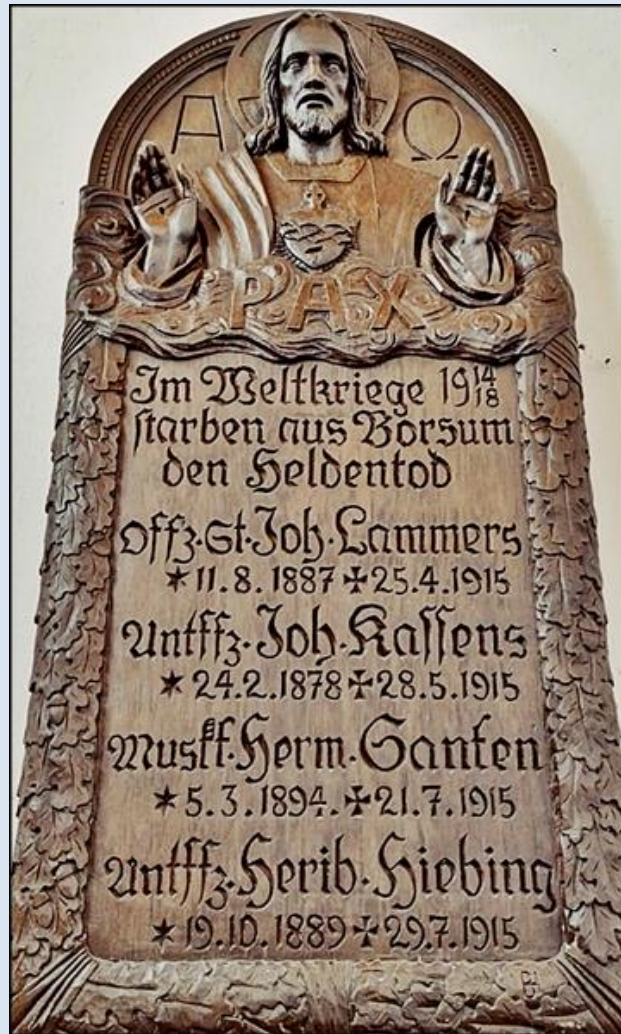 Α Ω
PAX
Im Weltkriege 1914/18
starben aus Borsum
den Heldentod
Offz·St·Joh·Lammers
*11.8.1887✠25.4.1915
Untffz·Joh·Kassens
*24.2.1878✠28.5.1915
Muskt·Herm·Santen
*5.3.1894.✠21.7.1915
Untffz·Herib·Hiebing
*19.10.1889✠29.7.1915